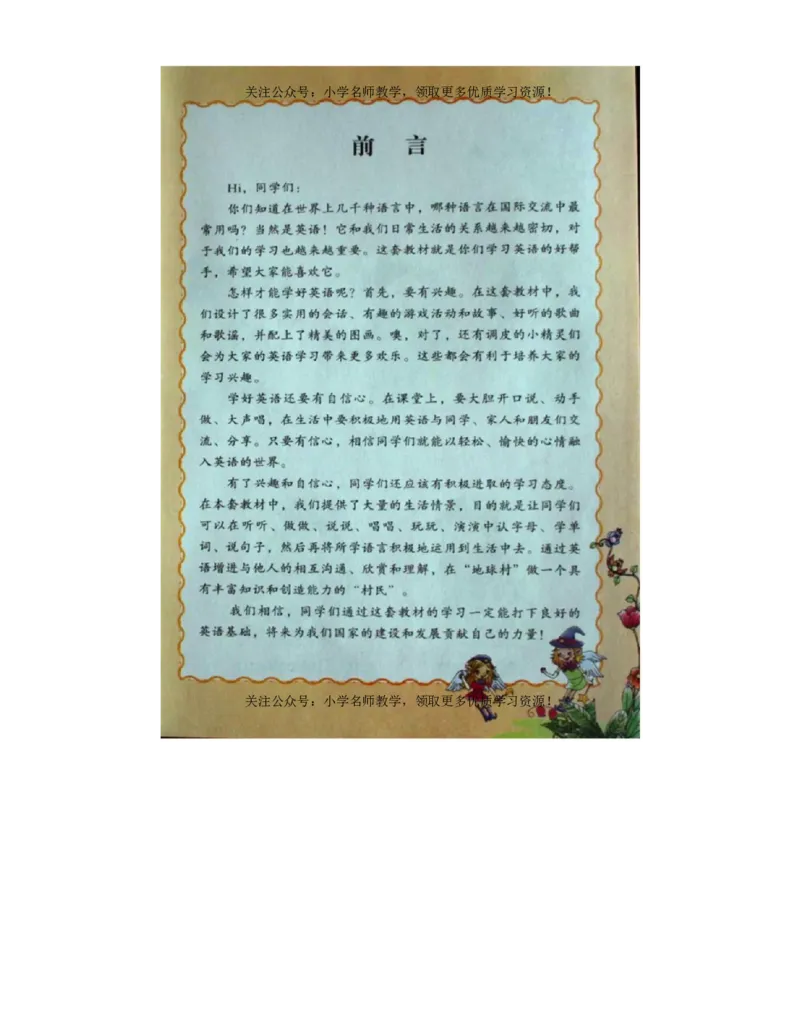 关注公众号：小学名师教学，领取更多优质学习资源！
前 言
Hi，同学们：
你们知道在世界上几千种语言中，哪种语言在国际交流中最
常用吗？当然是英语！它和我们日常生活的关系越来越密切，对
于我们的学习也越来越重要。这套教材就是你们学习英语的好帮
手，希望大家能喜欢它。
怎样才能学好英语呢？首先，要有兴趣。在这套教材中，我
们设计了很多实用的会话、有趣的游戏活动和故事、好听的歌曲
和歌谣，并配上了精美的图画。噢，对了，还有调皮的小精灵们
会为大家的英语学习带来更多欢乐。这些都会有利于培养大家的
学习兴趣。
学好英语还要有自信心。在课堂上，要大胆开口说、动手
做、大声唱，在生活中要积极地用英语与同学、家人和朋友们交
流、分享。只要有信心，相信同学们就能以轻松、愉快的心情融
入英语的世界。
有了兴趣和自信心，同学们还应该有积极进取的学习态度。
在本套教材中，我们提供了大量的生活情景，目的就是让同学们
可以在听听、做做、说说、唱唱、玩玩、演演中认字母、学单
词、说句子，然后再将所学语言积极地运用到生活中去。通过英
语增进与他人的相互沟通、欣赏和理解，在“地球村”做一个具
有丰富知识和创造能力的“村民”。
我们相信，同学们通过这套教材的学习一定能打下良好的
英语基础，将来为我们国家的建设和发展贡献自己的力量！
关注公众号：小学名师教学，领取更多优质学习资源！